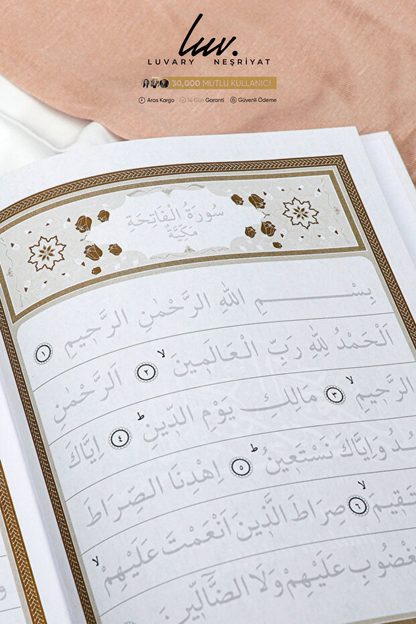 luv.
LUVARY NEŞRİYAT
30,000 MUTLU KULLANICI
Aras Kargo 14 Gün Garanti Güvenli Ödeme
سُورَةُ الْفَاتِحَةِ
مَكِّيَّةٌ
بِسْــــــمِ اللهِ الرَّحْمٰنِ الرَّحٖيمِ ١
اَلْحَمْدُ لِلّٰهِ رَبِّ الْعَالَمٖينَ ٢ اَلرَّحْمٰنِ
الرَّحٖيمِ ٣ مَالِكِ يَوْمِ الدّٖينِ ٤ اِيَّاكَ
ـُدُ وَاِيَّاكَ نَسْتَعٖينُ ٥ اِهْدِنَا الصِّرَاطَ
ـقٖيمَ ٦ صِرَاطَ الَّذٖينَ اَنْعَمْتَ عَلَيْهِمْ
ـغْضُوبِ عَلَيْهِمْ وَلَا الضَّٓالّٖينَ